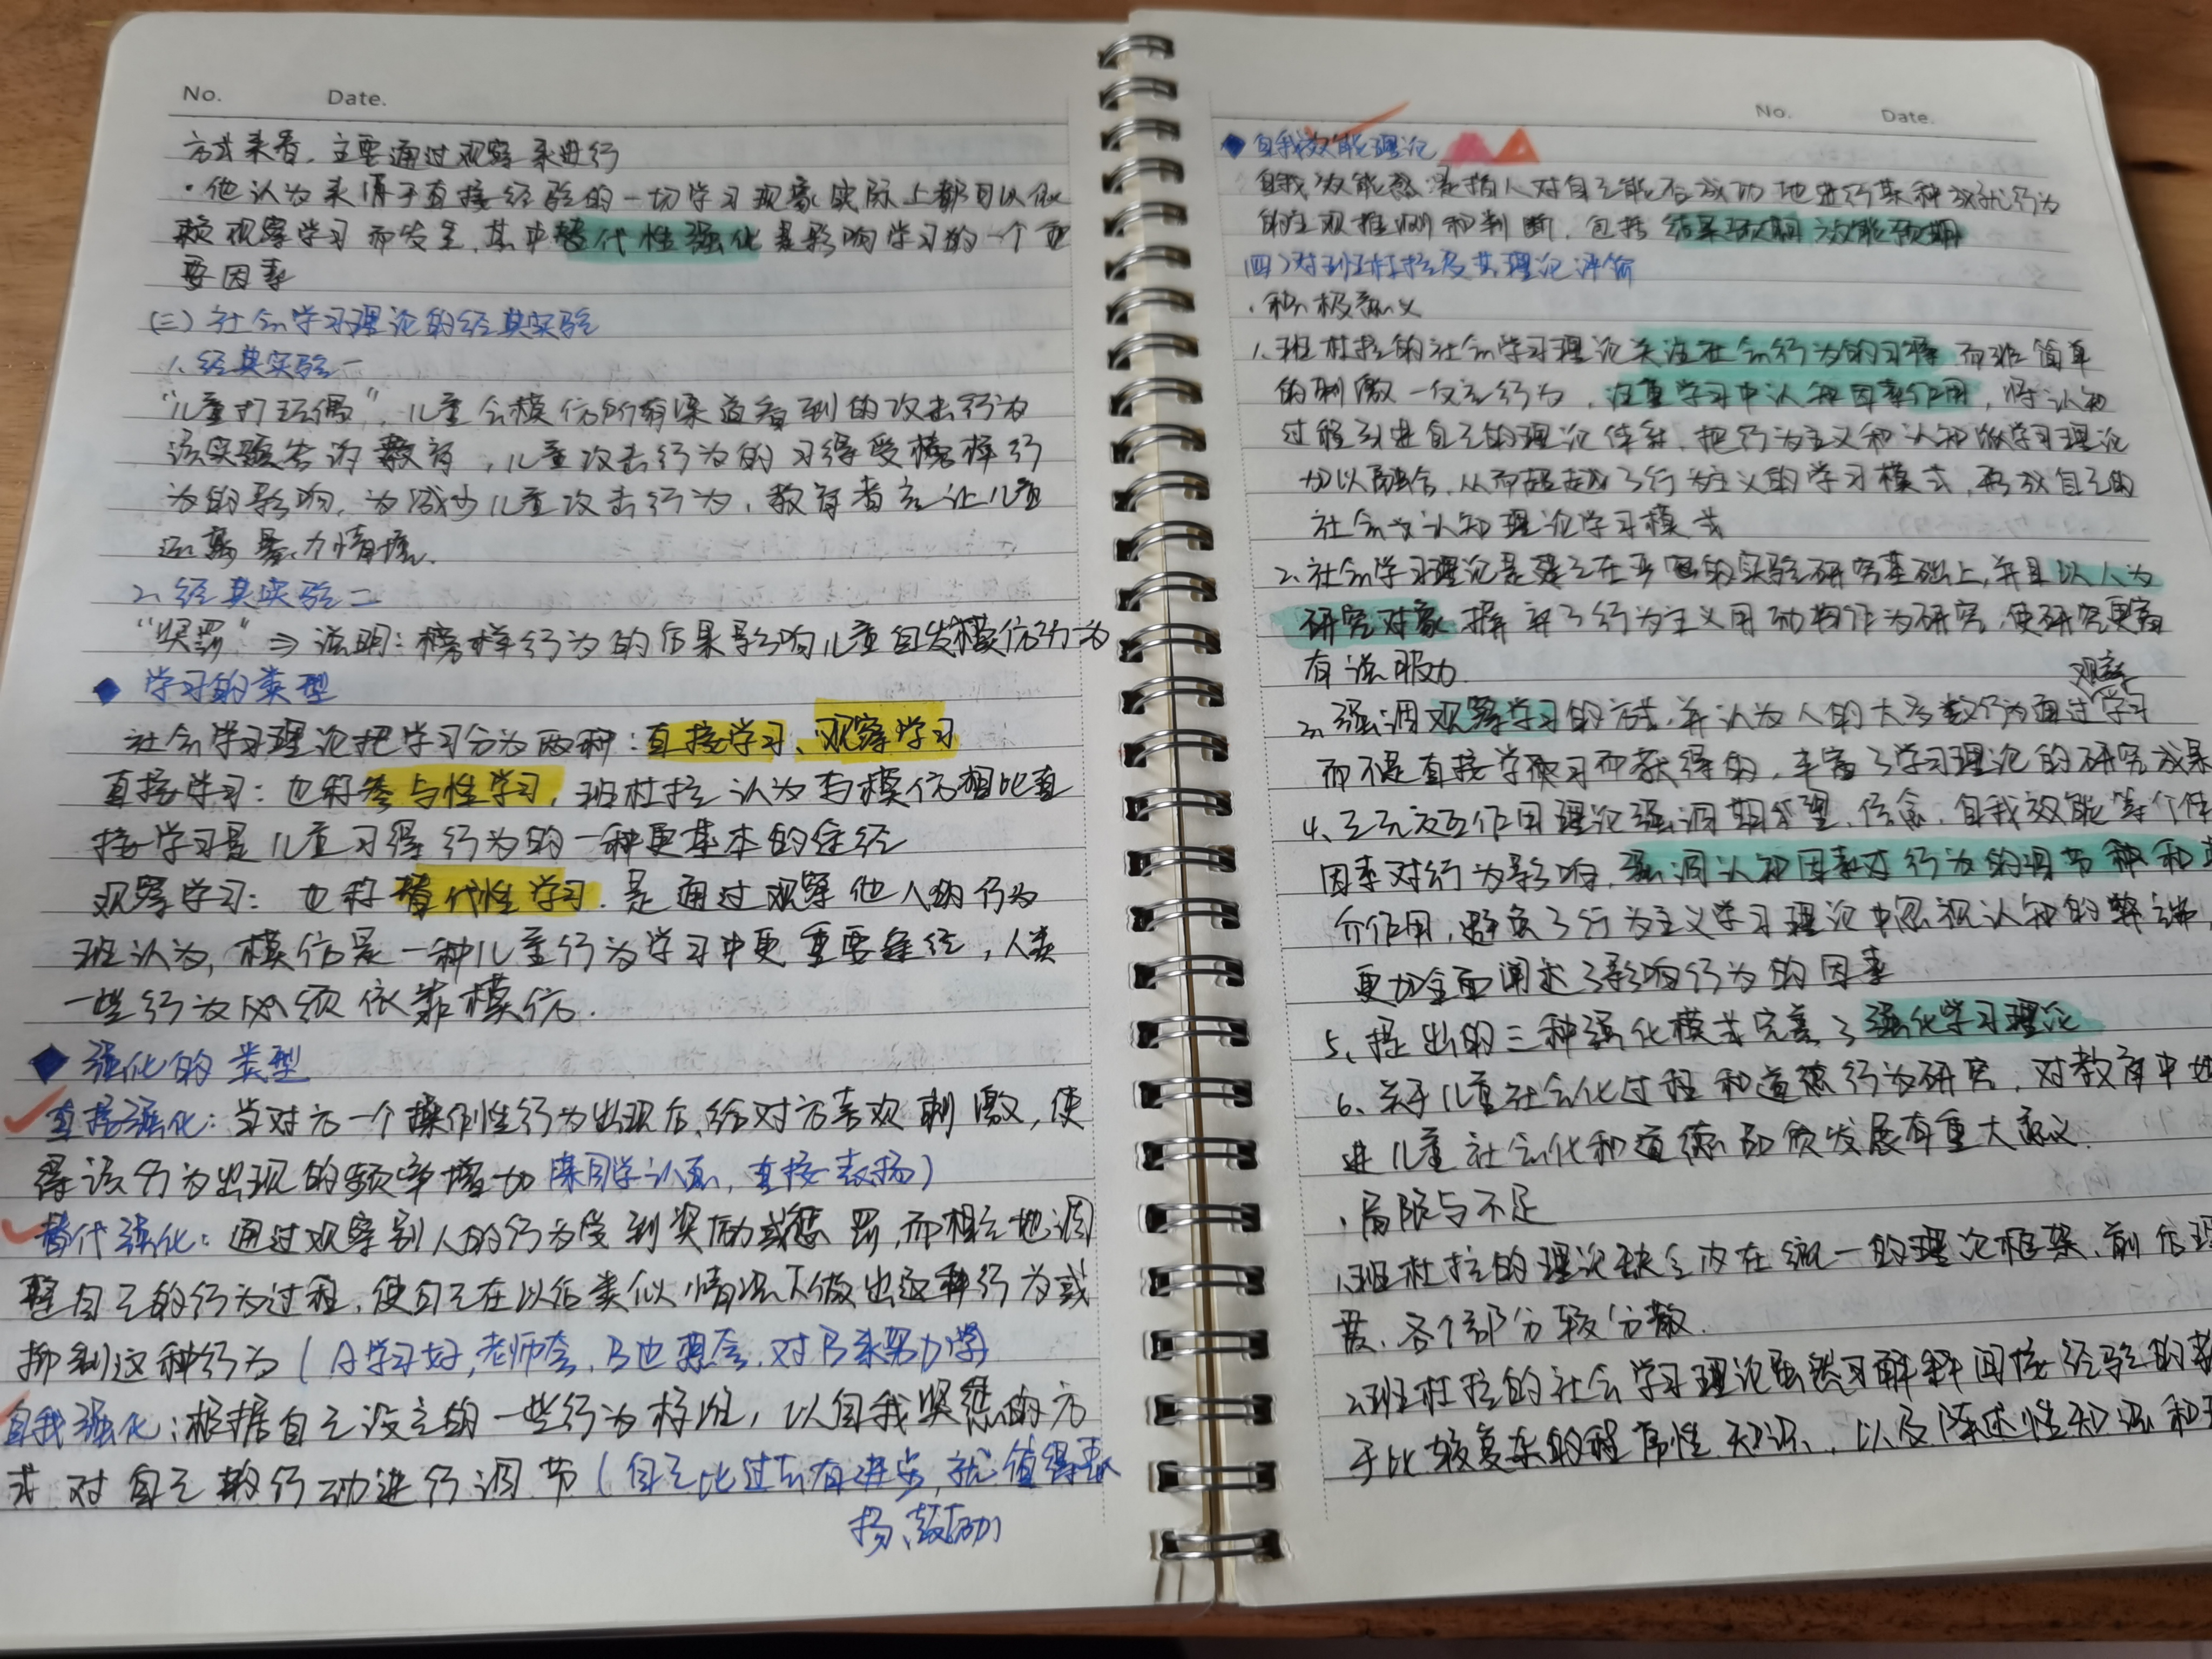 No. Date.
方式来看，主要通过观察来进行
·他认为来源于直接经验的一切学习现象实际上都可以依
赖观察学习而发生，其中替代性强化是影响学习的一个重
要因素
(三)社会学习理论的经典实验
1.经典实验一
“儿童打玩偶”，儿童会模仿所有渠道看到的攻击行为
该实验告诉教育，儿童攻击行为的习得受榜样行
为的影响，为减少儿童攻击行为，教育者应让儿童
远离暴力情境.
2.经典实验二
“奖罚”⇒说明：榜样行为的后果影响儿童自发模仿行为
◆ 学习的类型
社会学习理论把学习分为两种：直接学习、观察学习
直接学习：也称参与性学习，班杜拉认为与模仿相比直
接学习是儿童习得行为的一种更基本的途径
观察学习：也称替代性学习.是通过观察他人的行为
班认为，模仿是一种儿童行为学习中更重要途径，人类
一些行为必须依靠模仿.
◆ 强化的类型
直接强化：当对方一个操作性行为出现后，给对方喜欢刺激，使
得该行为出现的频率增加 同学认真，直接表扬)
替代强化：通过观察别人的行为受到奖励或惩罚，而相应地调
整自己的行为过程，使自己在以后类似情况下做出这种行为或
抑制这种行为(A学习好，老师夸，B也要夸，对B来努力学
自我强化：根据自己设立的一些行为标准，以自我奖惩的方
式对自己的行动进行调节(自己比过去有进步，就值得表
扬、鼓励)
No. Date.
◆自我效能理论
自我效能感是指人对自己能否成功地进行某种成就行为
的主观推测和判断，包括结果预期 效能预期
(四)对班杜拉及其理论评价
·积极意义
1.班杜拉的社会学习理论关注社会行为的习得而非简单
的刺激一反应行为，注重学习中认知因素作用，将认知
过程引进自己的理论体系，把行为主义和认知派学习理论
加以融合，从而超越了行为主义的学习模式，形成自己的
社会 认知理论学习模式
2.社会学习理论是建立在严密的实验研究基础上，并且以人为
研究对象，摒弃了行为主义用动物作为研究，使研究更富
有说服力.
3.强调观察学习的方式，并认为人的大多数行为通过观察学习
而不是直接学习而获得的，丰富了学习理论的研究成果
4、三元交互作用理论强调期望、信念、自我效能等个体
因素对行为影响，强调认知因素对行为的调节 和
介作用，避免了行为主义学习理论中忽视认知的弊端，
更加全面阐述了影响行为的因素
5、提出的三种强化模式完善了强化学习理论
6、关于儿童社会化过程和道德行为研究，对教育中
进儿童社会化和道德品质发展有重大意义.
·局限与不足
1.班杜拉的理论缺乏内在统一的理论框架，前后
，各个部分较分散.
2.班杜拉的社会学习理论虽然可解释间接经验的
于比较复杂的程序性知识，以及陈述性知识和